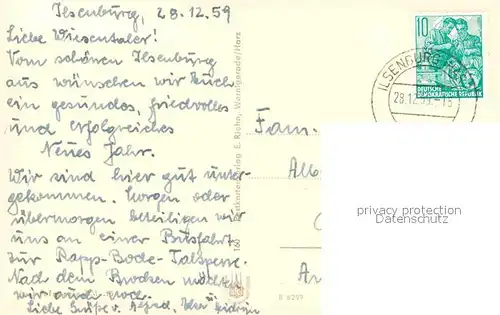 Ilsenburg, 28.12.59
Liebe Wiesentaler!
Vom schönen Ilsenburg
aus wünschen wir Euch
ein gesundes, friedvolles
und erfolgreiches
Neues Jahr.
Wir sind hier gut unter-
gekommen. Morgen oder
übermorgen beteiligen wir
uns an einer Busfahrt
zur Rapp-Bode-Talsperre.
Nach dem Brocken
wir auch noch.
Liebe Grüße v. Alfred,
Fam.
10
DEUTSCHE
DEMOKRATISCHE REPUBLIK
ILSENBURG
28.12.59.-15
E. Riehn, Wernigerode/Harz
160
privacy protection
Datenschutz